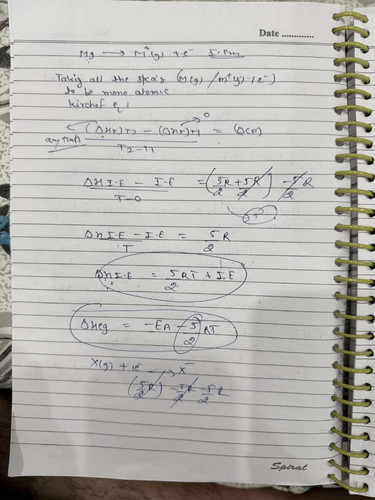 Date ............
Mg ⟶ M⁺(g) + e⁻ I.En
Taking all the spcs (M(g) / M⁺(g) / e⁻)
to be mono atomic
kirchof eq :
0
(ΔHr)T2 − (ΔHr)T1 = (ΔCP)
T2 − T1
ΔH I.E − I.E = (5R/2 + 5R/2) − 5/2 R
T − 0
ΔH I.E − I.E = 5/2 R
T
ΔH I.E = 5/2 RT + I.E
ΔHeg = −EA − 5/2 RT
X(g) + 1e⁻ ⟶ X⁻
(5/2 R) − 5/2 R − 5/2 R
Spiral